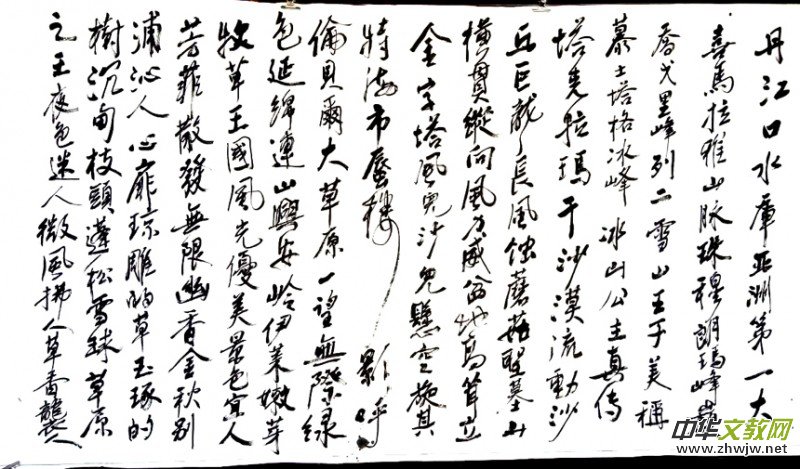 丹江口水庫亞洲第一大
喜馬拉雅山脉珠穆朗瑪峰巍
喬戈里峰列二雪山王子美稱
慕士塔格冰峰冰山公主真傳
塔克拉瑪干沙漠流動沙
丘巨龍長風蝕蘑菇聖墓山
横貫縱向風力威盆地高耸立
金字塔風兒沙兒懸空旋其
特海市蜃樓影呼
倫貝爾大草原一望無際绿
色延綿連山興安岭伊茉嫩芽
牧草王國風光優美景色宜人
芳菲散發無限幽香金秋别
浦沁人心扉琼雕的草玉琢的
樹沉甸枝頭蓬松雪球草原
之王夜色迷人微風拂人草香襲人
中华文教网
www.zhwjw.net